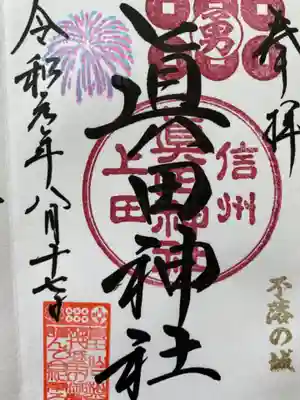 奉拝
不落の城
勇
信州
上田
眞田神社
眞田神社
令和元年八月十七日